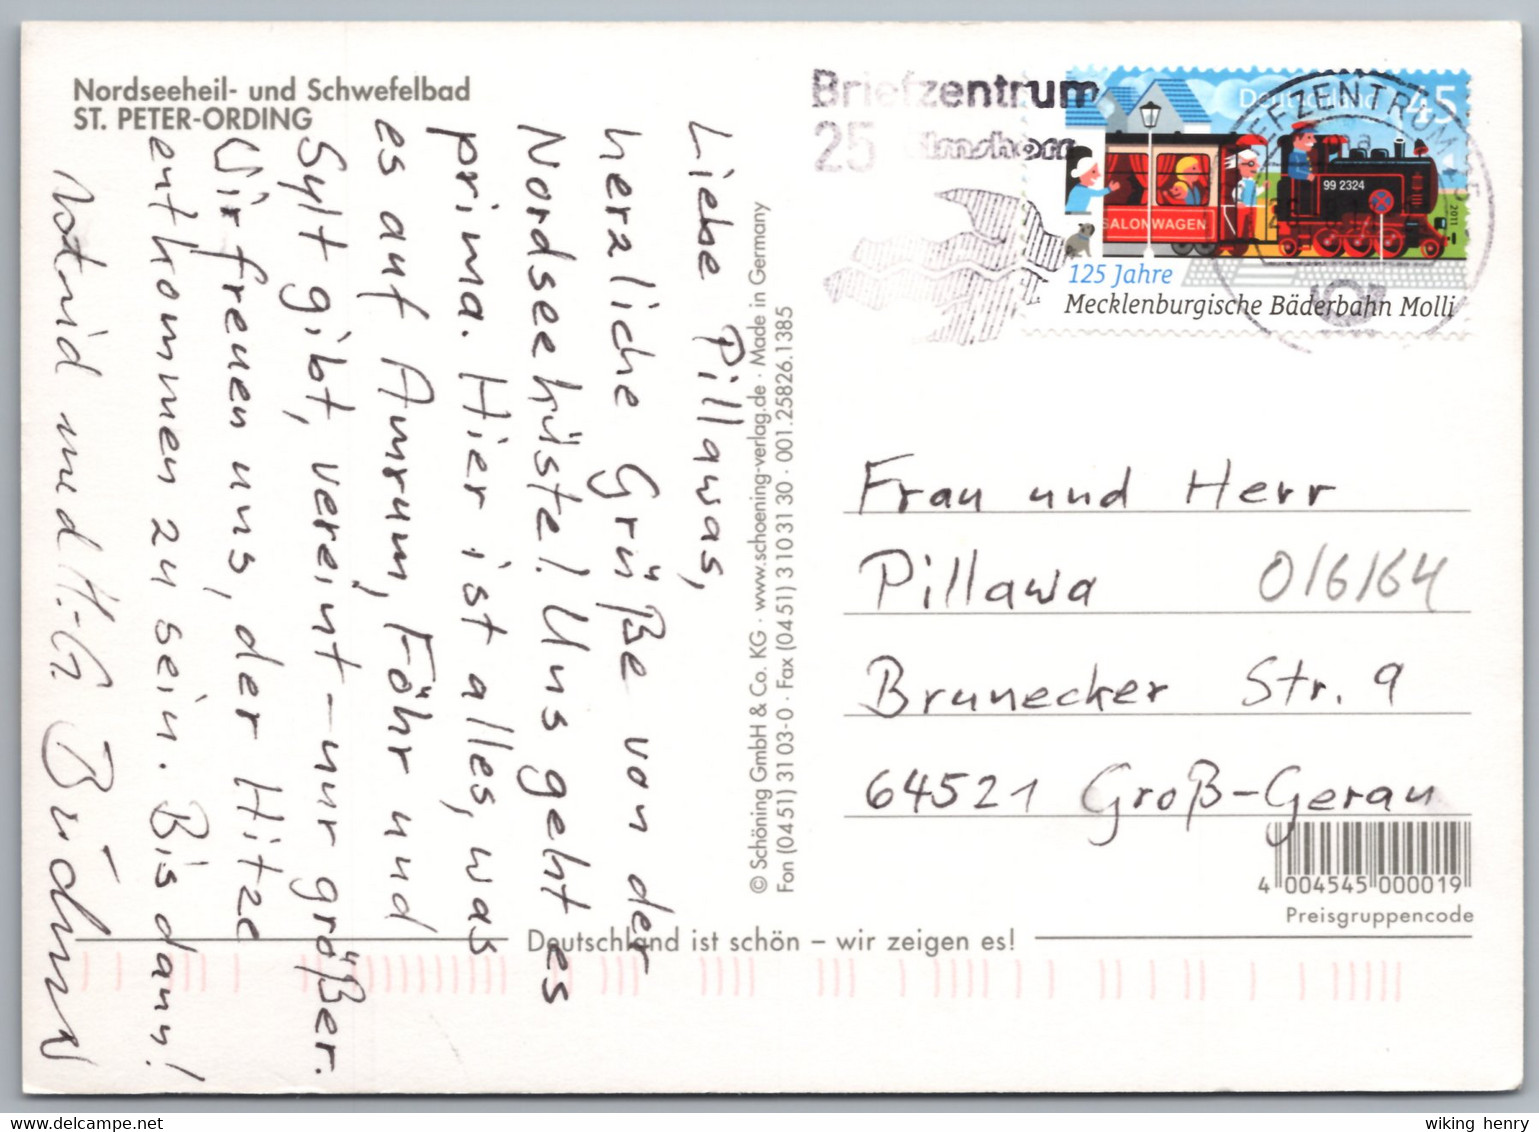 Nordseeheil- und Schwefelbad
ST. PETER-ORDING
Liebe Pillawas,
herzliche Grüße von der
Nordseeküste! Uns geht es
prima. Hier ist alles, was
es auf Amrum, Föhr und
Sylt gibt, vereint – nur größer.
Wir freuen uns, der Hitze
entkommen zu sein. Bis dann!
und H.-G.
© Schöning GmbH & Co. KG · www.schoening-verlag.de · Made in Germany
Fon (04 51) 31 03-0 · Fax (04 51) 3 10 31 30 · 001.25826.1385
Briefzentrum
25 Elmshorn
Deutschland 45
BRIEFZENTRUM 25
a
99 2324
SALONWAGEN
2011
125 Jahre
Mecklenburgische Bäderbahn Molli
Frau und Herr
Pillawa 016164
Brunecker Str. 9
64521 Groß-Gerau
4 004545 000019
Preisgruppencode
Deutschland ist schön – wir zeigen es!
wiking henry